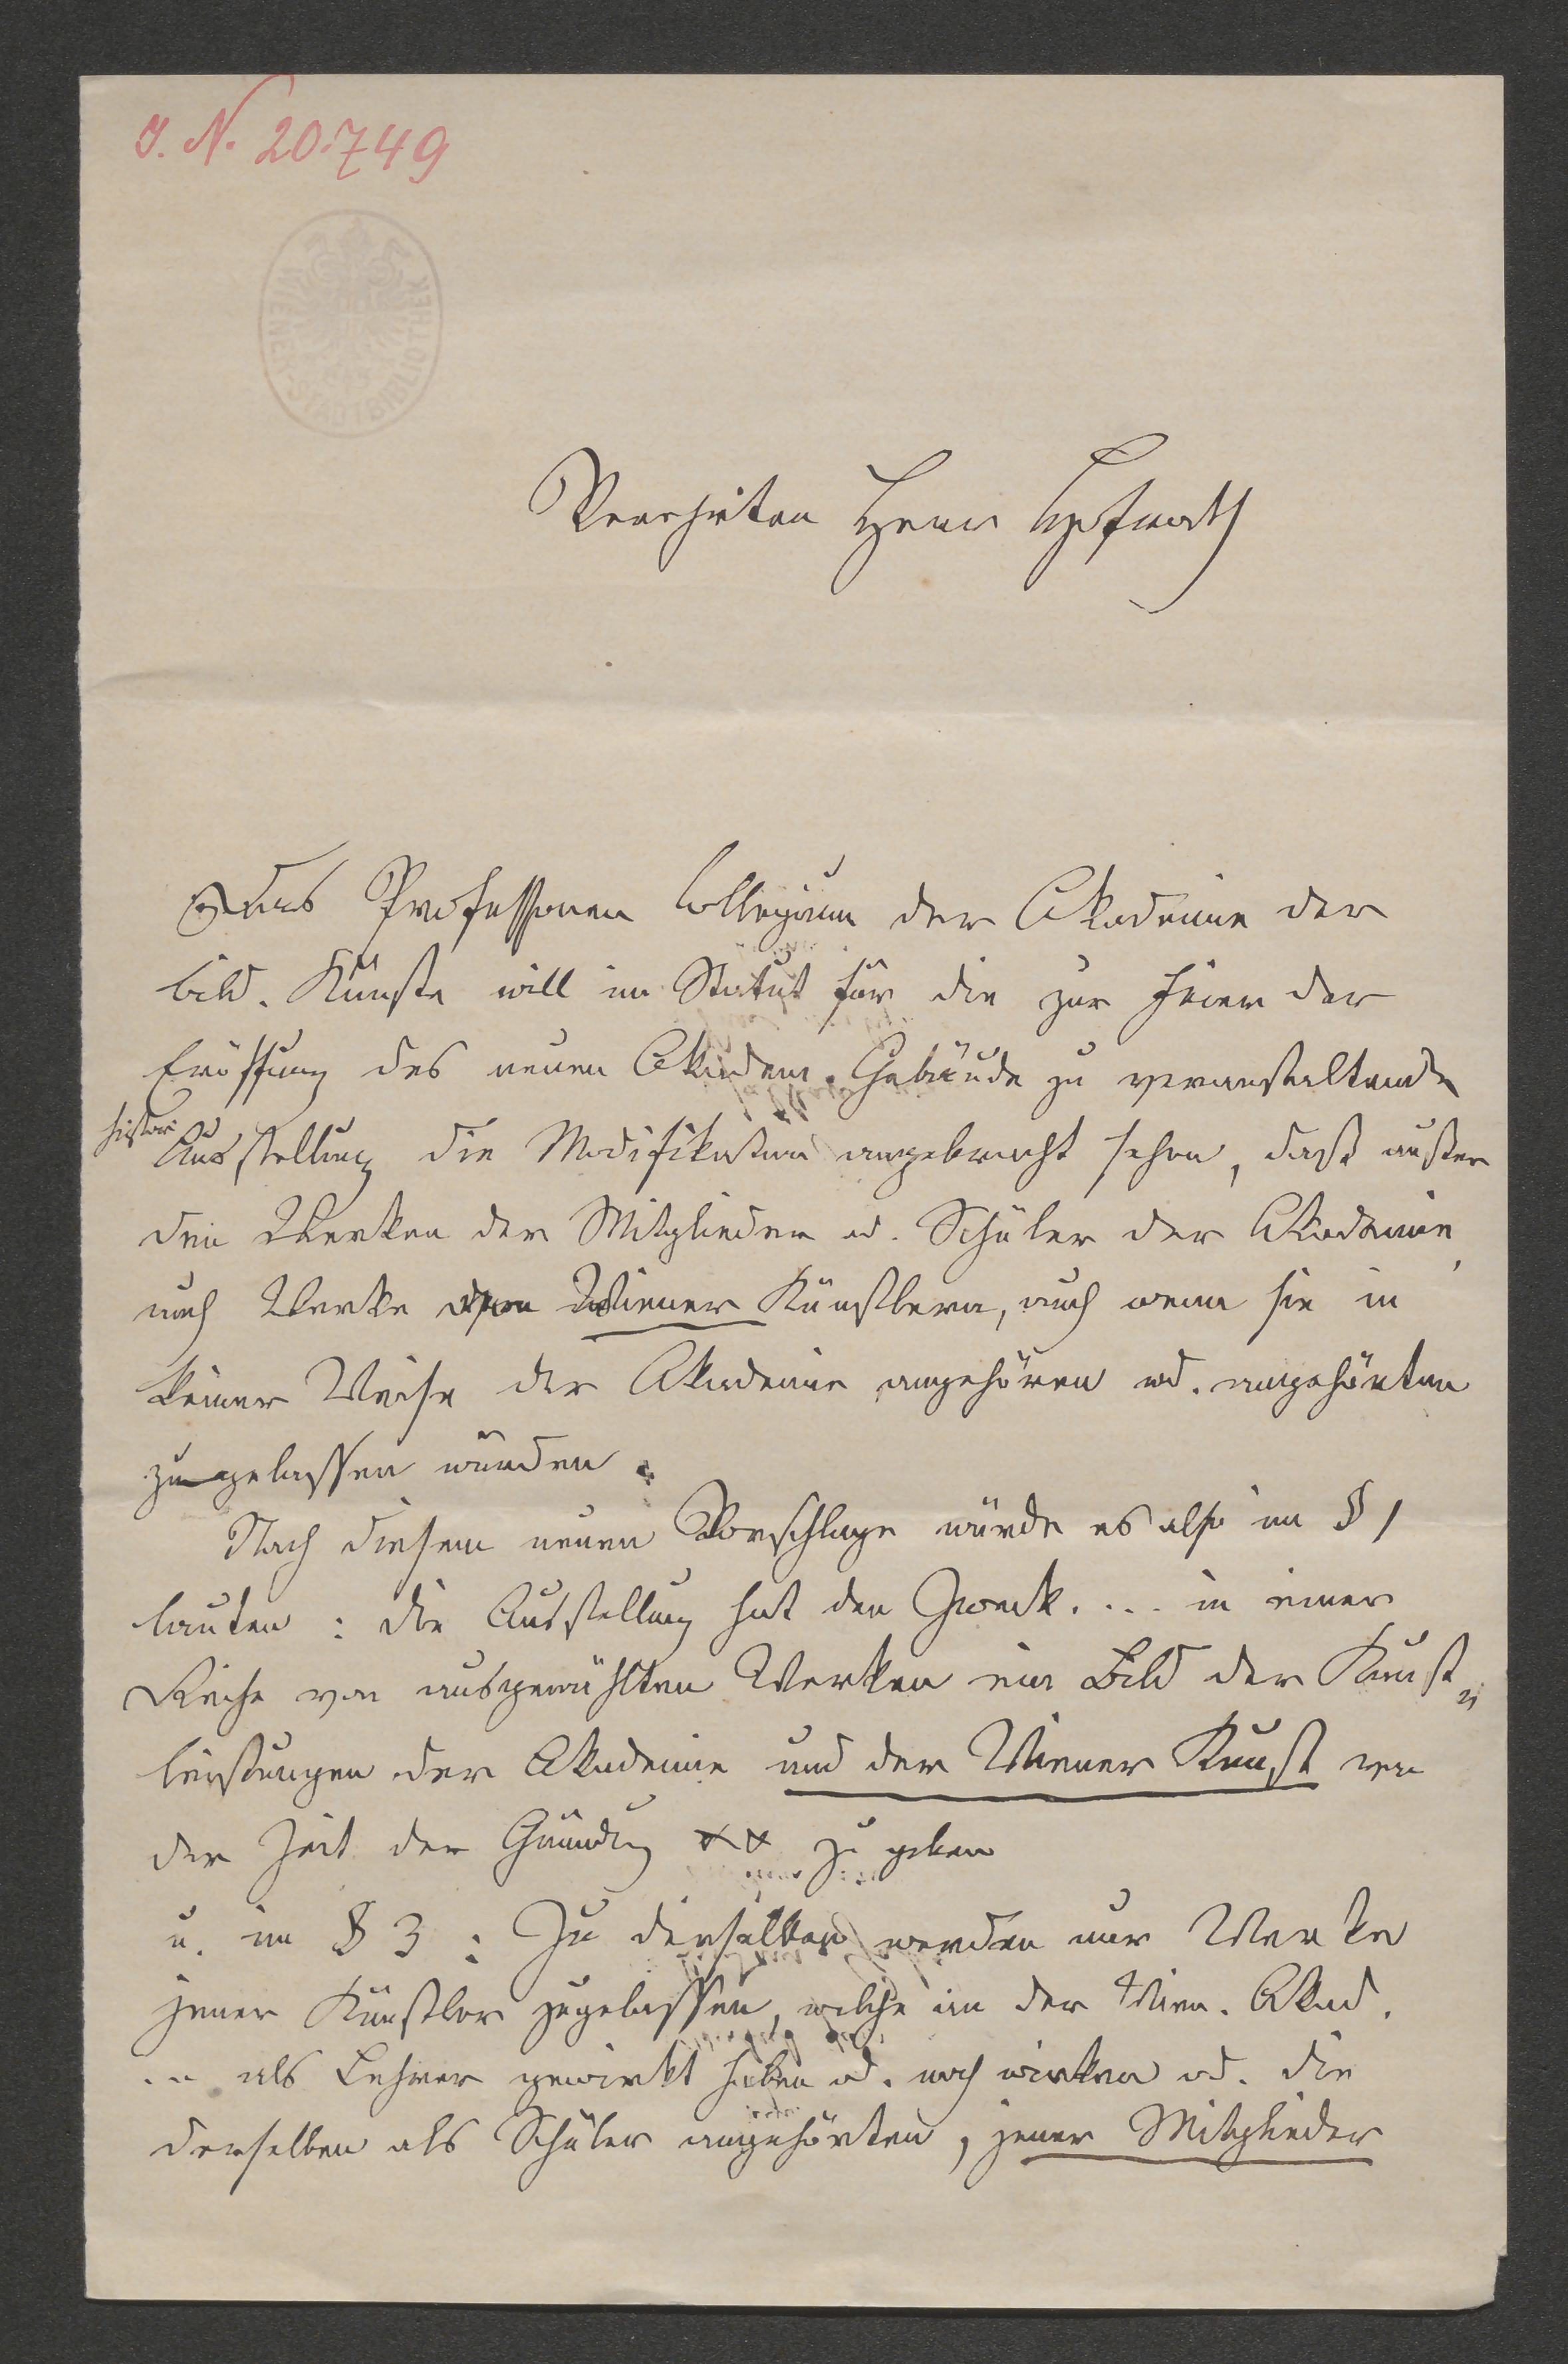 J. N. 20.749
WIENER STADTBIBLIOTHEK
Verehrter Herr Hofrath
Das Professoren Collegium der Akademie der
bild. Künste will im Statut für die zur Feier der
Eröffnung des neuen Akadem. Gebäude zu veranstaltende
histor
Ausstellung die Modifikation angebracht sehen, daß außer
den Werken der Mitglieder od. Schüler der Akademie,
auch Werke von Wiener Künstlern, auch wenn sie in
keiner Weise der Akademie angehören od. angehörten
zugelassen würden.
Nach diesem neuen Vorschlage würde es also im § 1
lauten: die Ausstellung hat den Zweck.... in einer
Reihe von ausgewählten Werken ein Bild der Kunst„
leistungen der Akademie und der Wiener Kunst von
der Zeit der Gründung xx zu geben
u. im § 3: Zu derselben werden nur Werke
jener Künstler zugelassen, welche an der Wien. Akad.
... als Lehrer gewirkt haben od. noch wirken od. die
derselben als Schüler angehörten, jener Mitglieder